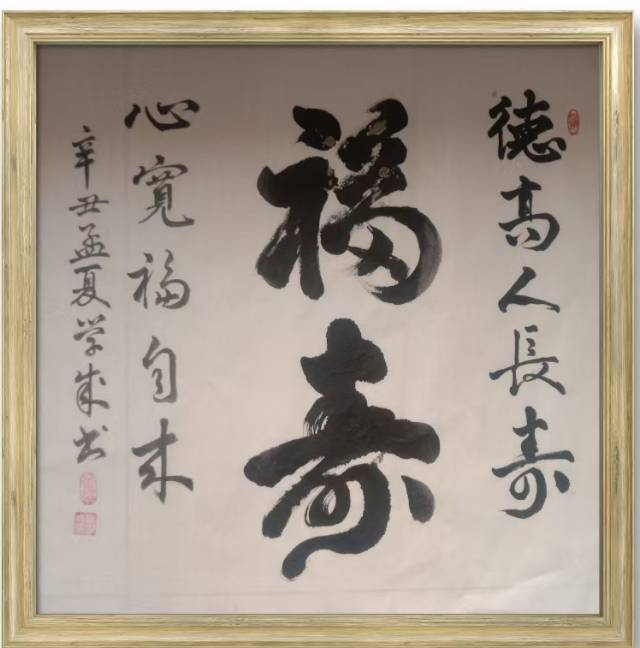 德高人長寿
福寿
心寬福自来
辛丑孟夏学成书